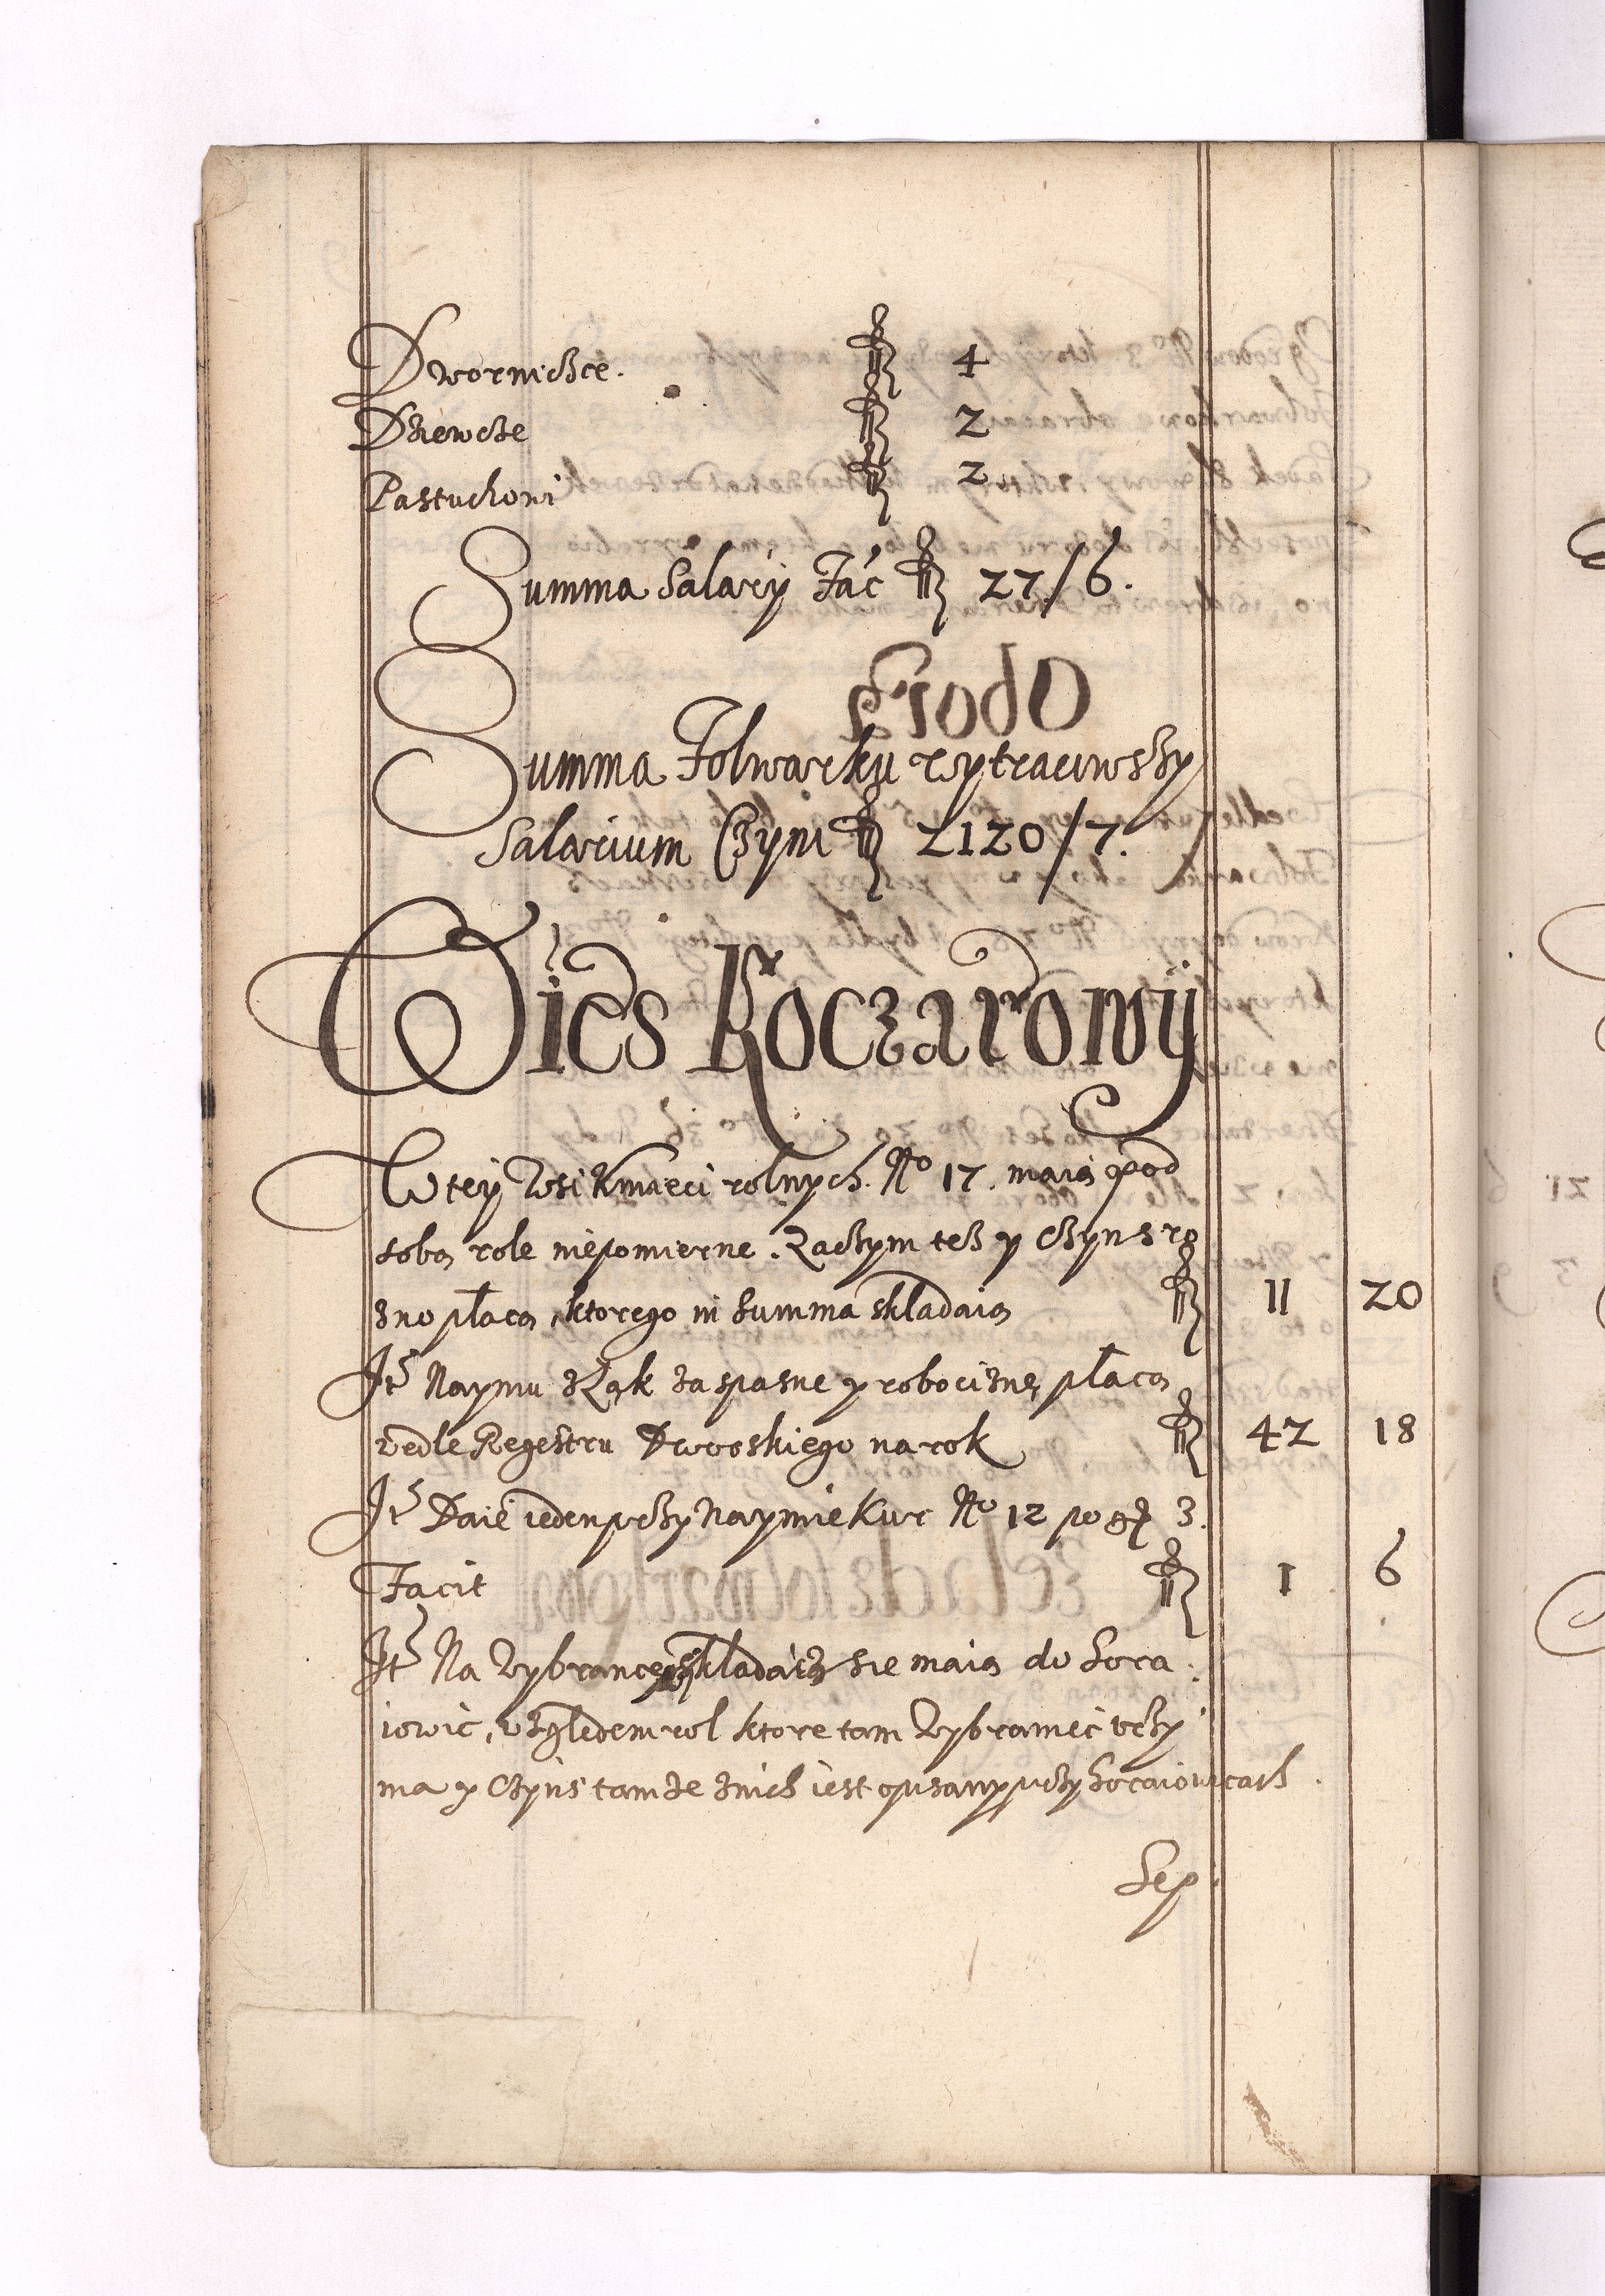 Dworniczce. fl 4
Dziewcze fl 2
Pastuchowi fl 2
Summa Salarÿ Fac fl 27/6.
Summa Folwarku wytraciwszy
Salarium Czyni fl 2120/7.
Wies Koczarowÿ
W teÿ Wsi Kmieci rolnych No 17. maią pod
sobą role niepomierne. Zaczym tesz y Czynsz ro
zno płacą, ktorego in Summa składaią fl 11 20
It Naymu z Łąk za spasne y robociznę płacą
vedle Regestru Dworskiego na rok fl 42 18
It Daie ieden przy Naymie Kur No 12 po gr 3.
Facit fl 1 6
It Na Wybrance składaią sie maią do Sora
iowic, względem rol ktore tam Wybraniec trzy
ma y Czyns tamze znich iest opisany przy Soraiowicach.
Sep